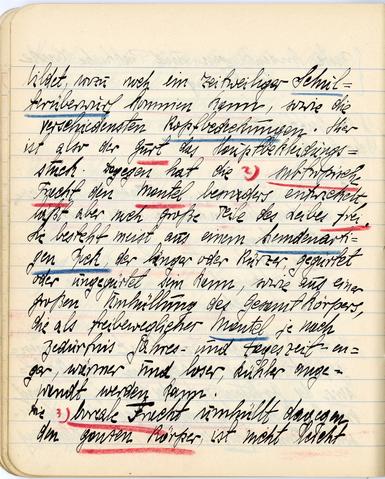 bildet, wozu noch ein zeitweiliger Schul-
terüberwurf kommen kann, sowie die
verschiedensten Kopfbedeckungen. Hier
ist also der Gurt das Hauptbekleidungs-
stück. Dagegen hat die 2) 
Tracht den Mantel besonders entwickelt,
läßt aber noch große Teile des Leibes frei.
Sie besteht meist aus einem hemdenarti-
gen Rock, der länger oder kürzer, gegürtet
oder ungegürtet sein kann, sowie aus einer
großen Umhüllung des Gesamtkörpers,
die als freibeweglicher Mantel je nach
Bedürfnis Jahres- und Tageszeit en-
ger, wärmer und loser, kühler ange-
wandt werden kann.
Die 3) Tracht umhüllt dagegen
den ganzen Körper, ist nicht leicht